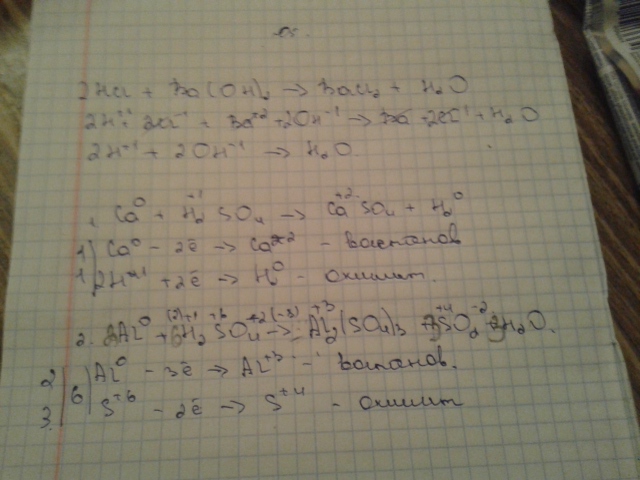 2HCl + Ba(OH)₂ → BaCl₂ + H₂O
2H⁺¹ 2Cl⁻¹ + Ba⁺² + 2OH⁻¹ → Ba + 2Cl⁻¹ + H₂O
2H⁺¹ + 2OH⁻¹ → H₂O
1. Ca⁰ + H₂⁺¹SO₄ → Ca⁺²SO₄ + H₂⁰
1) Ca⁰ - 2ē → Ca⁺² - востанов
1 2H⁺¹ + 2ē → H⁰ - окислит.
2. 2Al⁰ + 6H₂⁺¹S⁺⁶O₄ → Al₂⁺³(SO₄)₃ + 3S⁺⁴O₂⁻² H₂O.
2 6) Al⁰ - 3ē → Al⁺³ - востанов.
3. S⁺⁶ - 2ē → S⁺⁴ - окислит